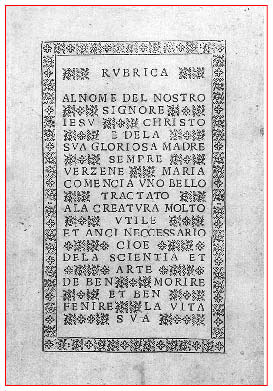 RVBRICA
AL NOME DEL NOSTRO
SIGNORE
IESV CHRISTO
E DELA
SVA GLORIOSA MADRE
SEMPRE
VERZENE MARIA
COMENCIA VNO BELLO
TRACTATO
A LA CREATVRA MOLTO
VTILE
ET ANCI NECCESSARIO
CIOE
DELA SCIENTIA ET
ARTE
DE BEN MORIRE
ET BEN
FENIRE LA VITA
SVA